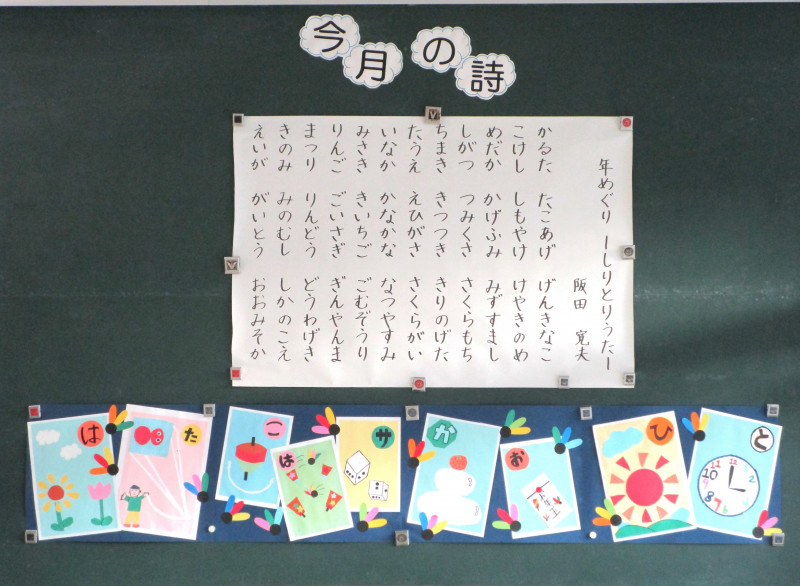 今月の詩
年めぐり ーしりとりうたー
阪田 寛夫
かるた たこあげ げんきなこ
こけし しもやけ けやきのめ
めだか かげふみ みずすまし
しがつ つみくさ さくらもち
ちまき きつつき きりのげた
たうえ えひがさ さくらがい
いなか かなかな なつやすみ
みさき きいちご ごむぞうり
りんご ごいさぎ ぎんやんま
まつり りんどう どうわげき
きのみ みのむし しかのこえ
えいが がいとう おおみそか
は
た
こ
は
サ
か
お
ひ
と